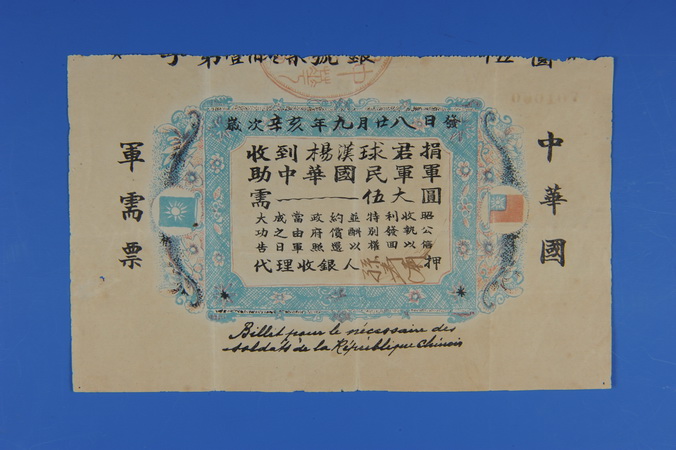 歲次辛亥年九月廿八日發
收到楊漢球君捐
助中華國民軍軍
需———伍大圓
大功告成之日當由軍政府照約償還並酬以特別權利發回收執以昭公信
代理收銀人 押
中華國
軍需票
Billet pour le nécessaire des
soldats de la République Chinois